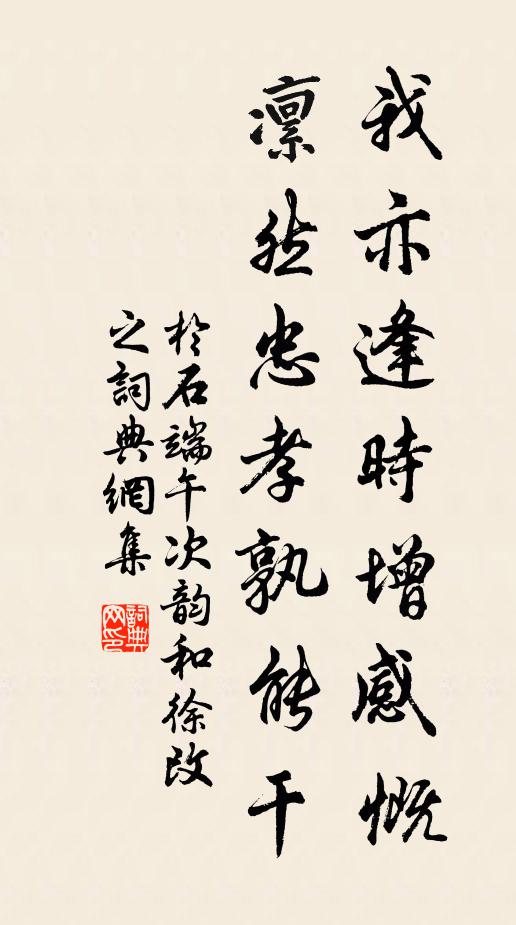 我亦逢時增感慨
凛然忠孝孰能干
於石端午次韵和徐改
之詞典網集
詞典
网印